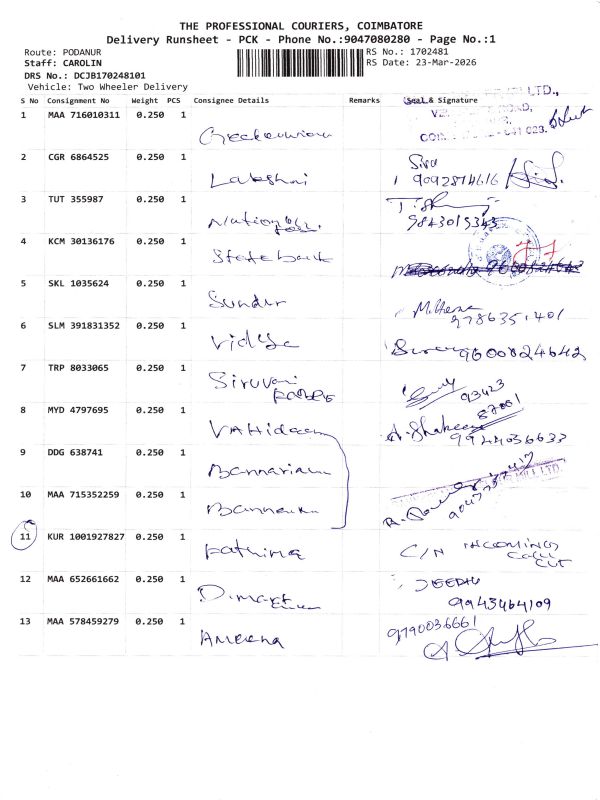 THE PROFESSIONAL COURIERS, COIMBATORE
Delivery Runsheet - PCK - Phone No.:9047080280 - Page No.:1
Route: PODANUR
RS No.: 1702481
Staff: CAROLIN
RS Date: 23-Mar-2026
DRS No.: DCJB170248101
Vehicle: Two Wheeler Delivery
S No Consignment No Weight PCS Consignee Details Remarks Seal & Signature
1 MAA 716010311 0.250 1
2 CGR 6864525 0.250 1
Lakshmi
Siva
9092814616
3 TUT 355987 0.250 1
9843015343
4 KCM 30136176 0.250 1
State bank
5 SKL 1035624 0.250 1
Sundar
M. Hema
9786351401
6 SLM 391831352 0.250 1
Vidya
9600824642
7 TRP 8033065 0.250 1
Siruvani
93423
87001
8 MYD 4797695 0.250 1
A. Shakeen
9944036633
9 DDG 638741 0.250 1
10 MAA 715352259 0.250 1
11 KUR 1001927827 0.250 1
Fathima
C/N INCOMING
CALL
CUT
12 MAA 652661662 0.250 1
D.mart
JEEDHU
9943464109
13 MAA 578459279 0.250 1
Ameena
9790036661